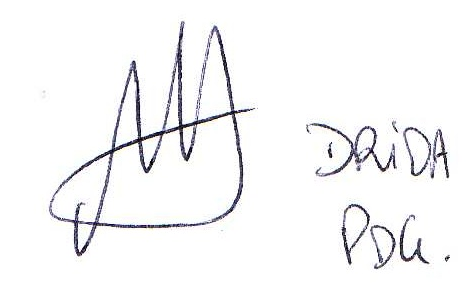 DRiDA
PDG.